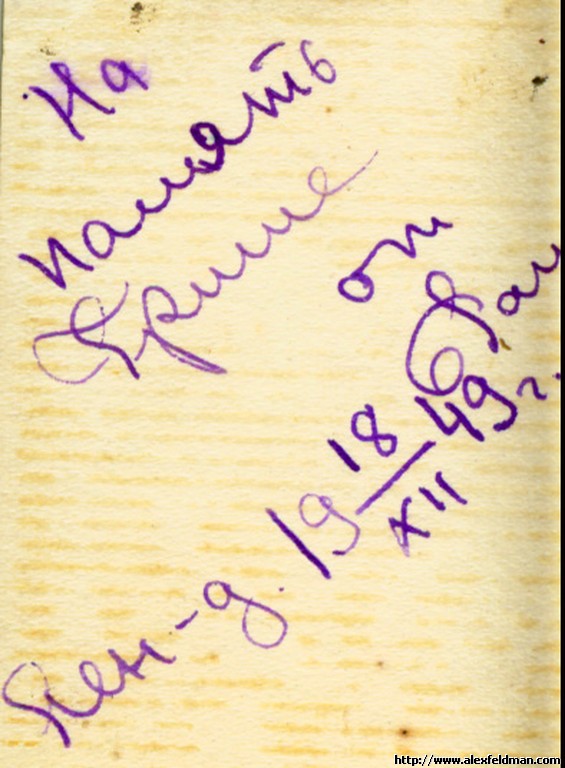 На
память
от
Лен-д. 19 18/XII 49 г.
http://www.alexfeldman.com